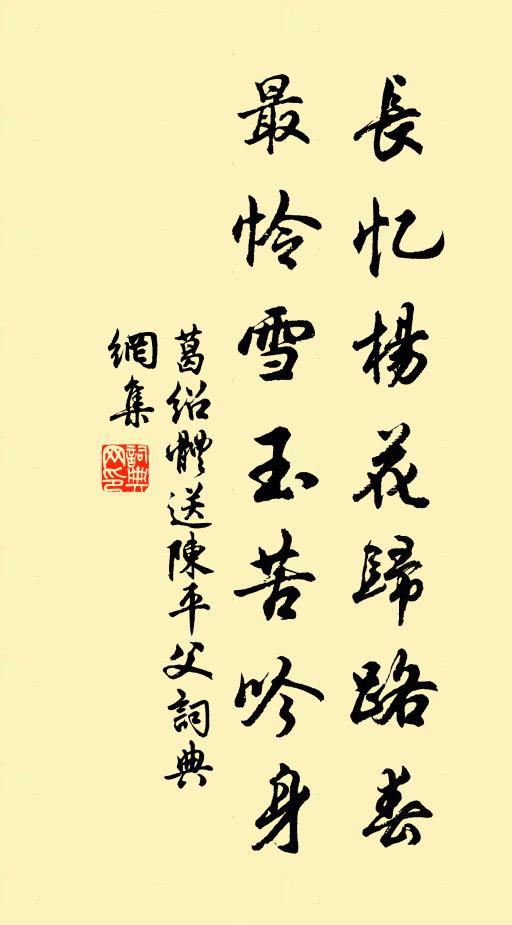 長忆楊花歸路春
最怜雪玉苦吟身
葛紹體送陳平父詞典
網集
詞典
网印